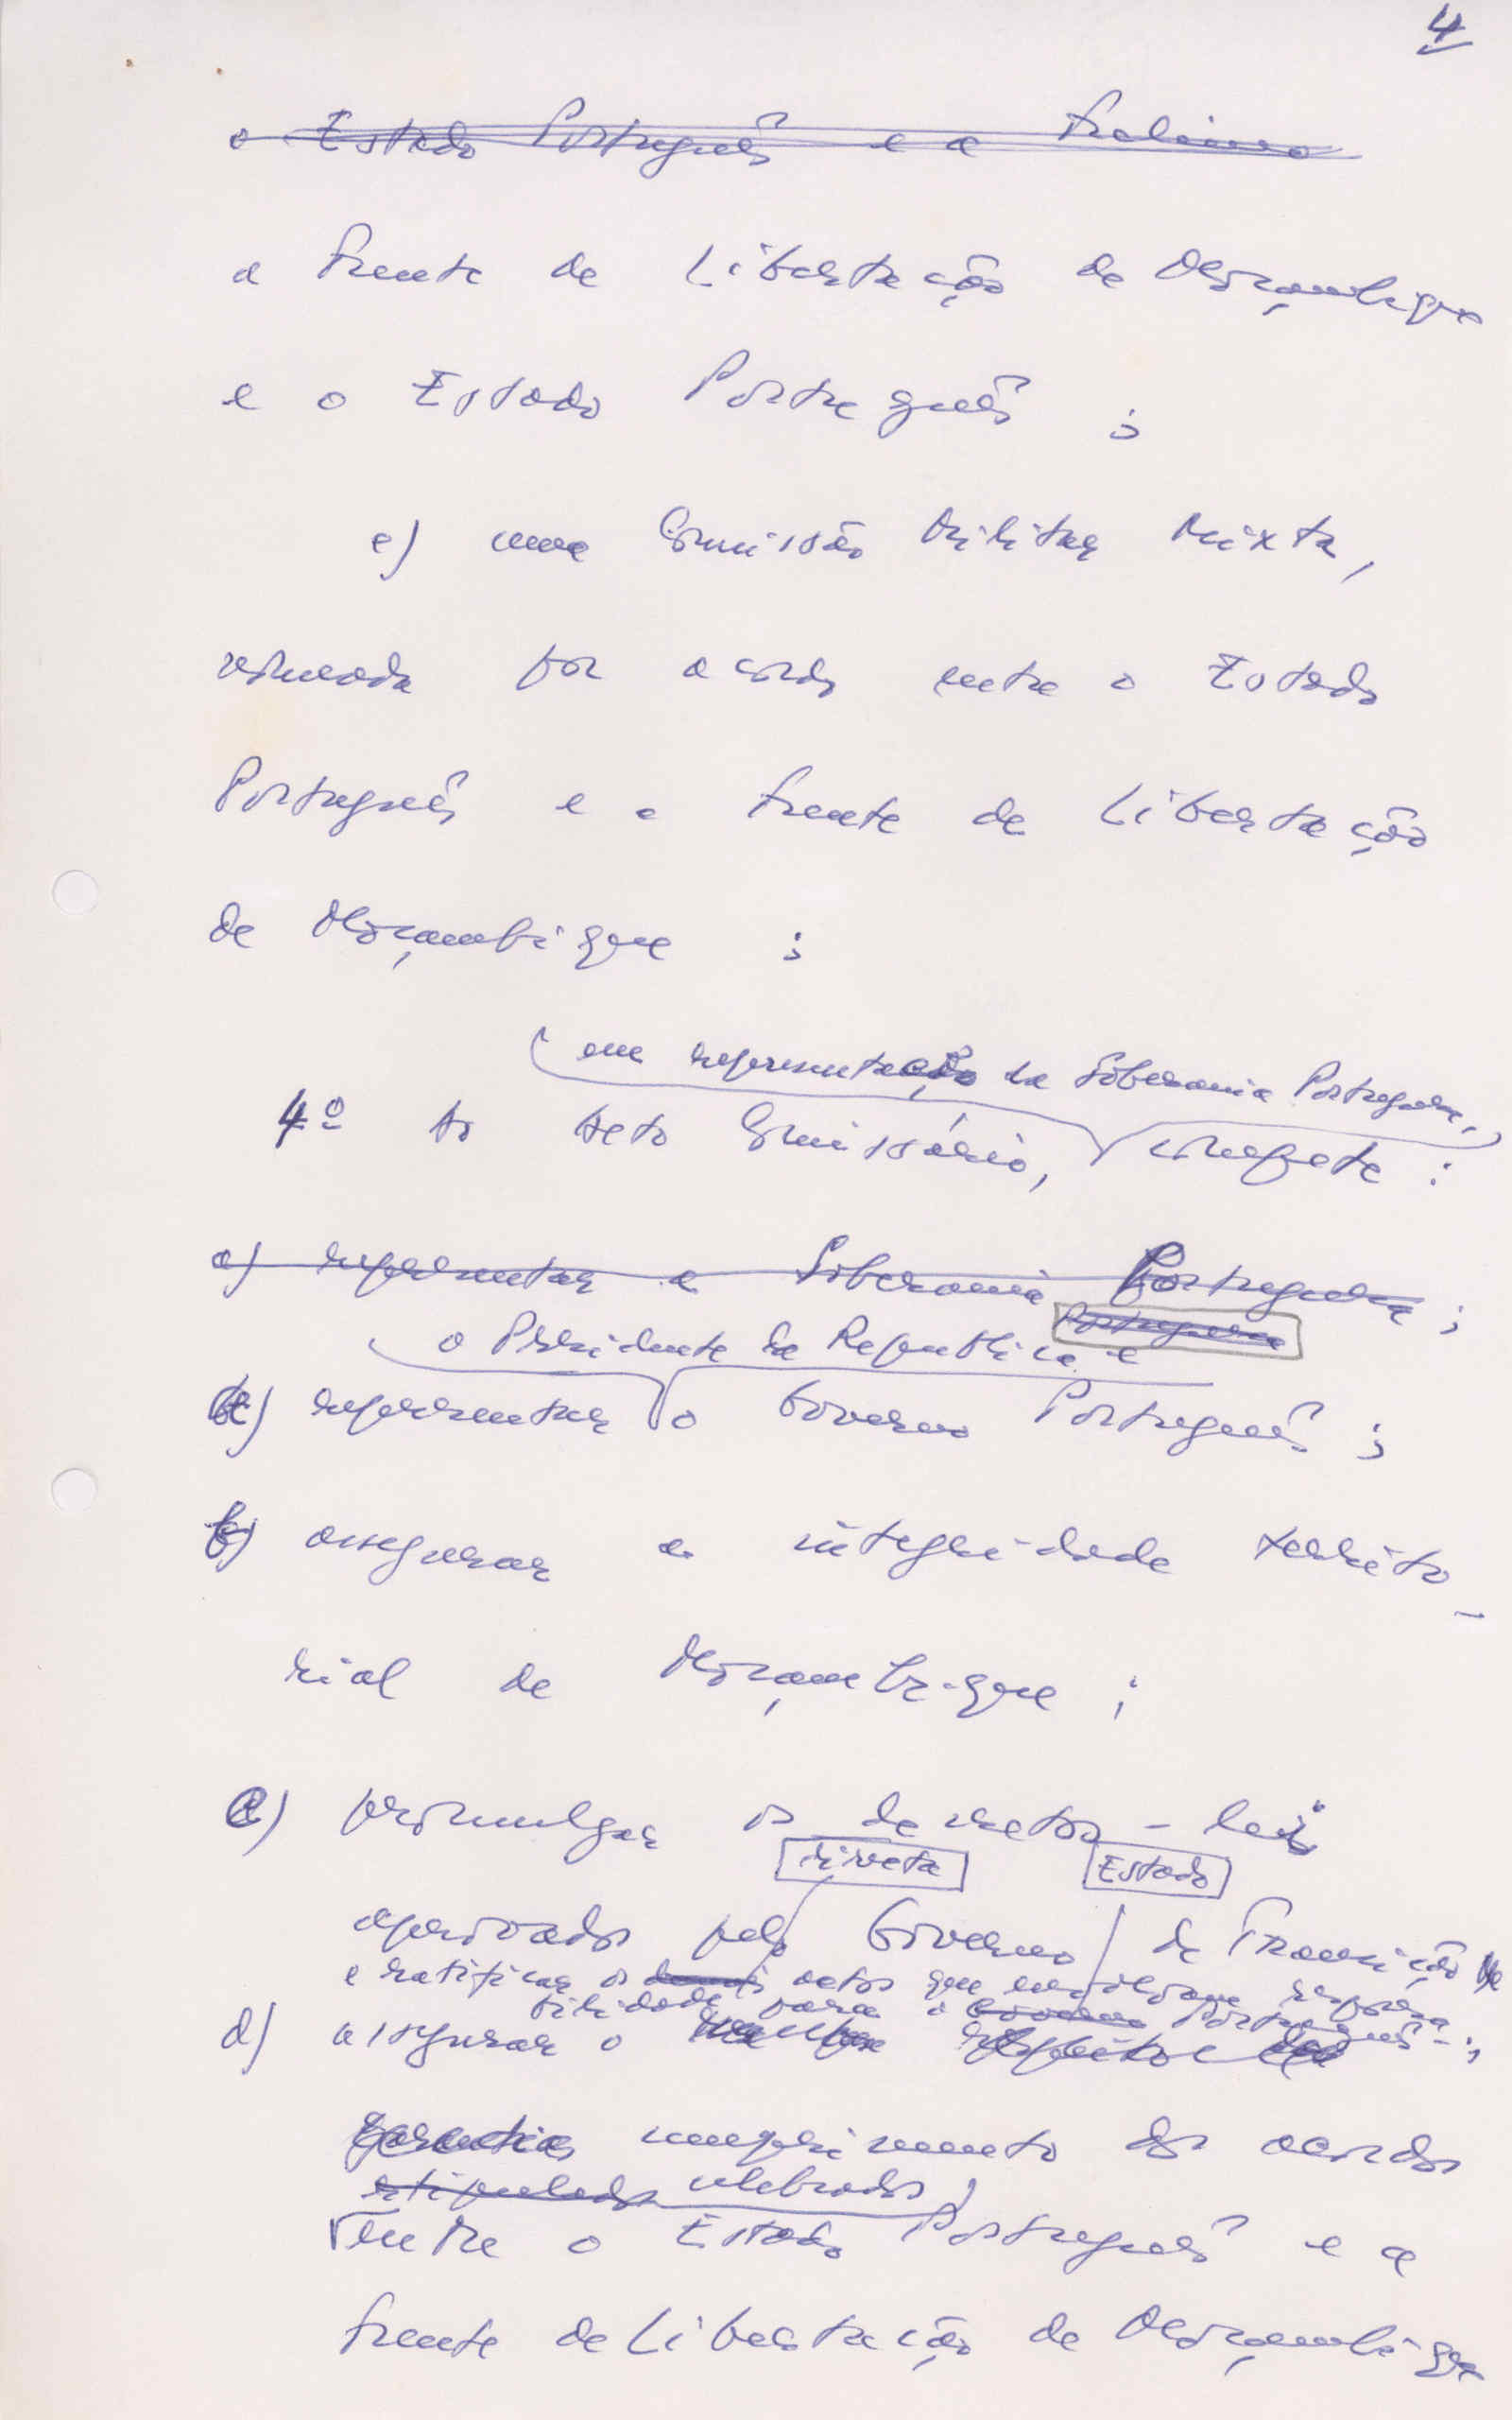 4
o Estado Português e a Frelimo
a Frente de Libertação de Moçambique
e o Estado Português ;
c) uma Comissão Militar Mixta,
nomeada por acordo entre o Estado
Português e a Frente de Libertação
de Moçambique ;
em representação da Soberania Portuguesa,
4º Ao Alto Comissário, compete :
a) representar a Soberania Portuguesa ;
Portuguesa
o Presidente da Republica e
a) representar o Governo Português ;
b) assegurar a integridade territo-
rial de Moçambique ;
c) promulgar os decretos-leis
directa Estado
aprovados pelo Governo de Transição
e ratificar os demais actos que envolvam responsa-
bilidade para o Governo Português ;
d) assegurar o respeito
garantias cumprimento dos acordos
estipulados celebrados
entre o Estado Português e a
Frente de Libertação de Moçambique